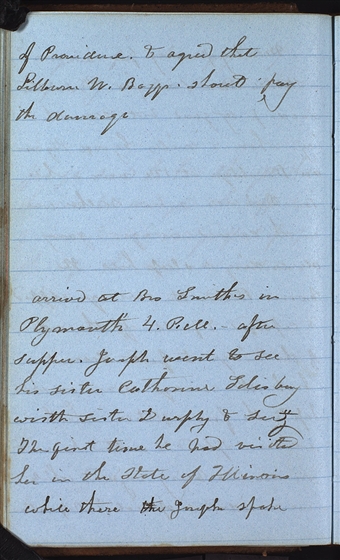 of Providence. & agreed that
Lilburn W. Boggs. shout pay
the damage
arrived at Bro Smiths in
Plymouth 4. P.M. - after
supper. Joseph went to see
his sister Catharine Salisbury
with sister Durphy &
The first time he had visited
her in the State of Illinois
while there the Joseph spake